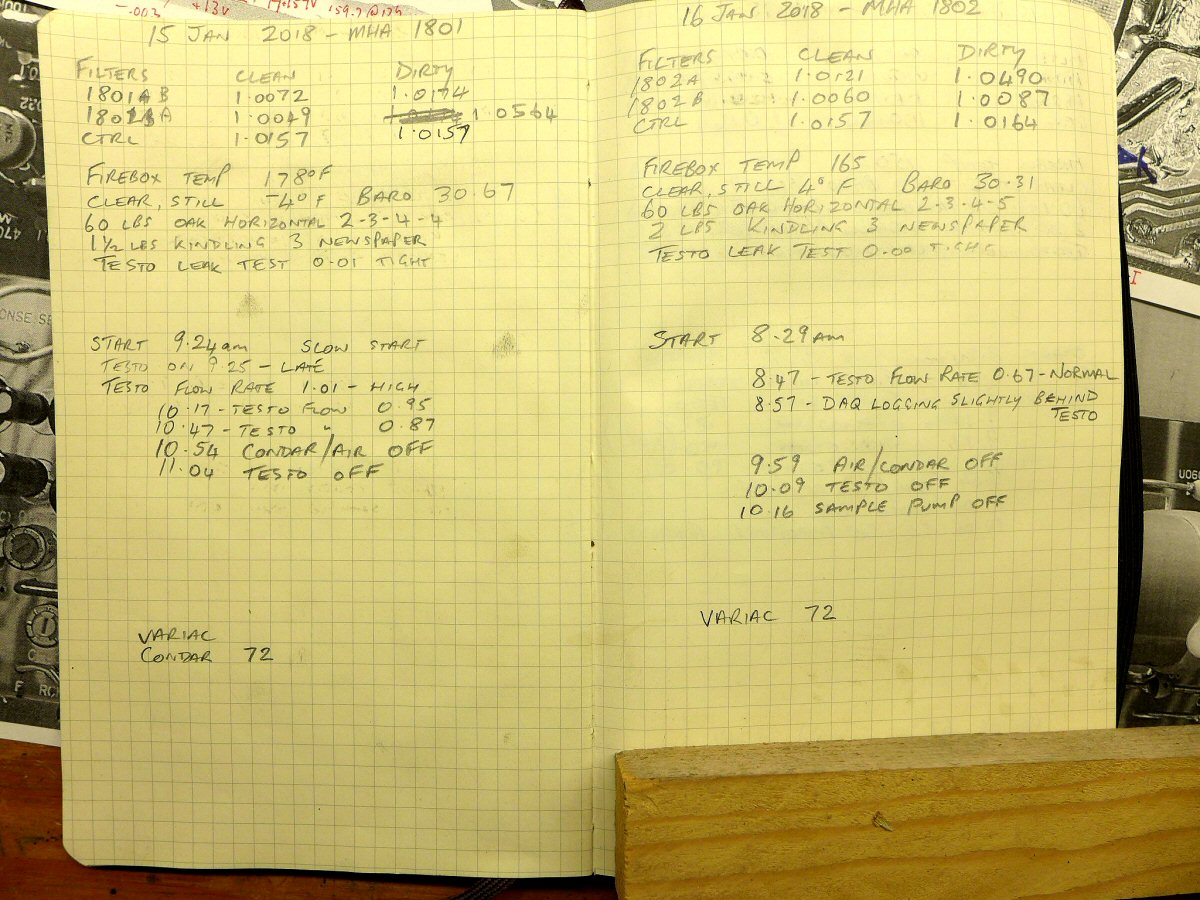 -.003 +13V 14.157V
15 JAN 2018 - MHA 1801
FILTERS CLEAN DIRTY
1801AB 1.0072 1.0174
1801BA 1.0049 1.0564
CTRL 1.0157 1.0157
FIREBOX TEMP 178°F
CLEAR, STILL -4°F BARO 30.67
60 LBS OAK HORIZONTAL 2-3-4-4
1½ LBS KINDLING 3 NEWSPAPER
TESTO LEAK TEST 0.01 TIGHT
START 9.24am SLOW START
TESTO ON 9.25 - LATE
TESTO FLOW RATE 1.01 - HIGH
10.17 - TESTO FLOW 0.95
10.47 - TESTO " 0.87
10.54 CONDAR/AIR OFF
11.04 TESTO OFF
VARIAC
CONDAR 72
16 JAN 2018 - MHA 1802
FILTERS CLEAN DIRTY
1802A 1.0121 1.0490
1802B 1.0060 1.0087
CTRL 1.0157 1.0164
FIREBOX TEMP 165
CLEAR, STILL 4°F BARO 30.31
60 LBS OAK HORIZONTAL 2-3-4-5
2 LBS KINDLING 3 NEWSPAPER
TESTO LEAK TEST 0.00 TIGHT
START 8.29am
8.47 - TESTO FLOW RATE 0.67 - NORMAL
8.57 - DAQ LOGGING SLIGHTLY BEHIND
TESTO
9.59 AIR/CONDAR OFF
10.09 TESTO OFF
10.16 SAMPLE PUMP OFF
VARIAC 72